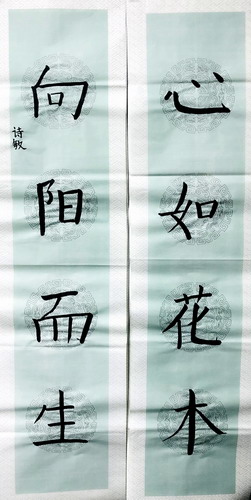 心如花木
向阳而生
诗敏